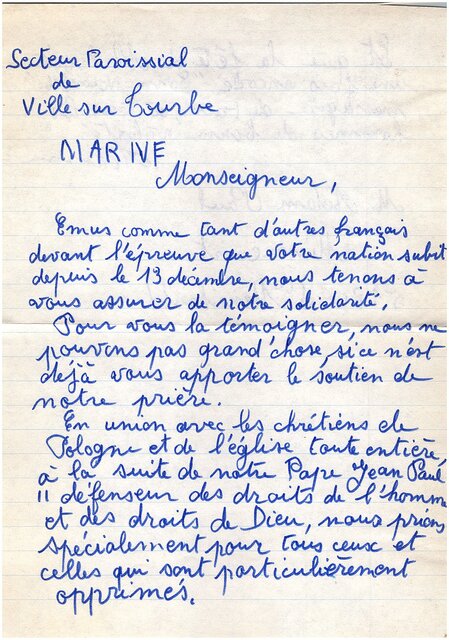 Secteur Paroissial
de
Ville sur Tourbe
MARNE
Monseigneur,
Emus comme tant d'autres français
devant l'épreuve que votre nation subit
depuis le 13 décembre, nous tenons à
vous assurer de notre solidarité.
Pour vous la témoigner, nous ne
pouvons pas grand'chose, si ce n'est
déjà vous apporter le soutien de
notre prière.
En union avec les chrétiens de
Pologne et de l'église toute entière,
à la suite de notre Pape Jean Paul
II défenseur des droits de l'homme
et des droits de Dieu, nous prions
spécialement pour tous ceux et
celles qui sont particulièrement
opprimés.